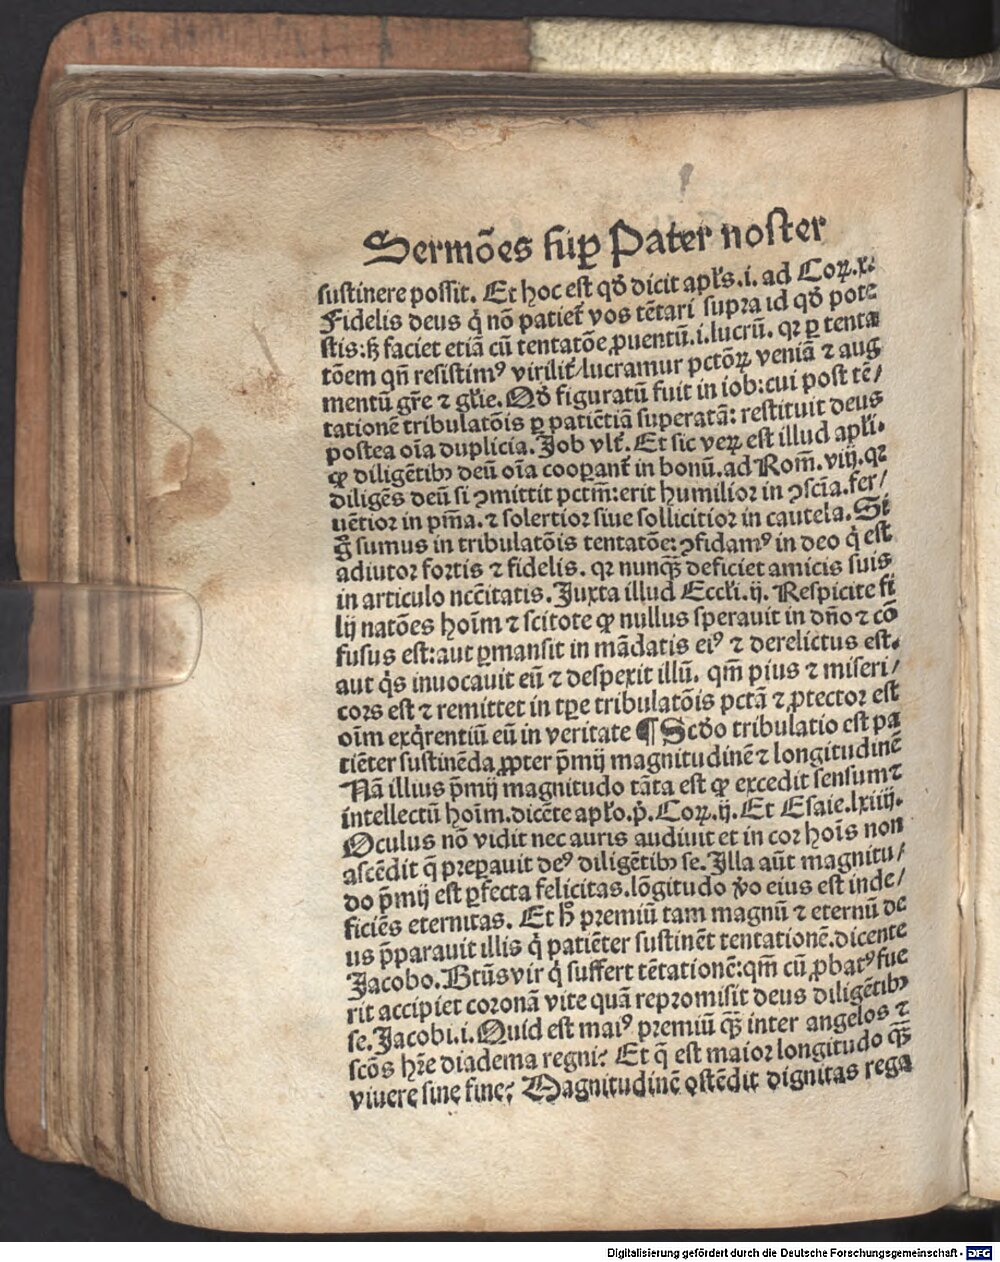 Sermões suꝑ Pater noster
sustinere possit. Et hoc est qđ dicit apłs.i. ad Coꝝ.x.
Fidelis deus q̇ nõ patiet᷑ vos tẽtari supra id qđ pote
stis:ꝩ faciet etiã cũ tentatõe ꝓuentũ.i.lucrũ. qꝛ ꝑ tenta
tõem qñ resistimꝰ virilit᷑/lucramur pctõꝝ veniã ⁊ aug
mentũ gr̃e ⁊ gl̃ie. Qđ figuratũ fuit in iob:cui post tẽ/
tationẽ tribulatõis ꝑ patiẽtiã superatã: restituit deus
postea oĩa duplicia. Job vlt᷑. Et sic veꝝ est illud apłi.
ꝙ diligẽtibꝫ deũ oĩa cooꝑant᷑ in bonũ.ad Rom̃.viij.qꝛ
diligẽs deũ si ꝯmittit pctm̃:erit humilior in ꝯscĩa.fer/
uẽtior in pm̃a.⁊ solertior siue sollicitior in cautela. Si
g̊ sumus in tribulatõis tentatõe: ꝯfidamꝰ in deo q̇ est
adiutor fortis ⁊ fidelis. qꝛ nunqꝫ̃ deficiet amicis suis
in articulo ncc̃itatis. Juxta illud Eccłi.ij. Respicite fi
lij natões hoĩm ⁊ scitote ꝙ nullus sperauit in dño ⁊ cõ
fusus est:aut ꝑmansit in mãdatis eiꝰ ⁊ derelictus est.
aut q̇s inuocauit eũ ⁊ despexit illũ. qm̃ pius ⁊ miseri/
cors est ⁊ remittet in tꝑe tribulatõis pctã ⁊ ꝓtector est
oĩm exq̇rentiũ eũ in veritate ¶ Scđo tribulatio est pa
tiẽter sustinẽda ꝓpter p̃mij magnitudinẽ ⁊ longitudinẽ
Nã illius p̃mij magnitudo tãta est ꝙ excedit sensum ⁊
intellectũ hoĩm.dicẽte apło.ṗ. Coꝝ.ij. Et Esaie.lxiiij.
Oculus nõ vidit nec auris audiuit et in cor hoĩs non
ascẽdit q̃ preꝑauit deꝰ diligẽtibꝫ se. Illa aũt magnitu/
do p̃mij est ꝑfecta felicitas.lõgitudo ꝟo eius est inde/
ficiẽs eternitas. Et h̃ premiũ tam magnũ ⁊ eternũ de
us p̃parauit illis q̇ patiẽter sustinẽt tentationẽ.dicente
Jacobo. Btũs vir q̇ suffert tẽtationẽ:qm̃ cũ ꝓbatꝰ fue
rit accipiet coronã vite quã repromisit deus diligẽtibꝫ
se. Jacobi.i. Quid est maiꝰ premiũ qꝫ̃ inter angelos ⁊
scõs hr̃e diadema regni? Et q̃ est maior longitudo qꝫ̃
viuere sine fine? Magnitudinẽ ostẽdit dignitas rega
Digitalisierung gefördert durch die Deutsche Forschungsgemeinschaft - DFG